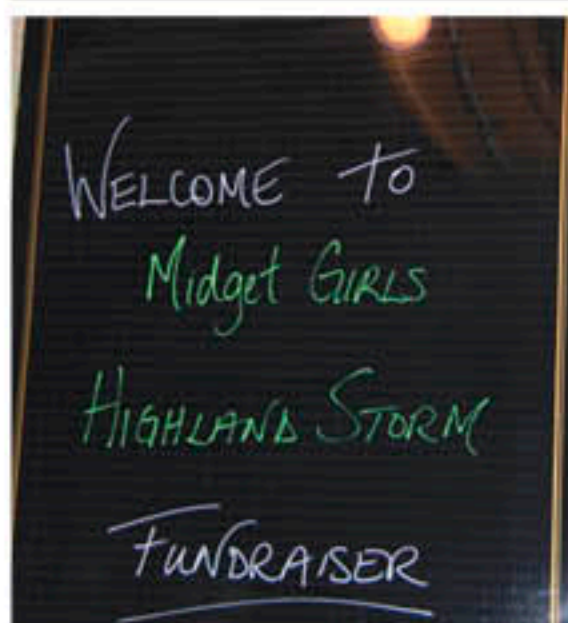 WELCOME TO
Midget GIRLS
HIGHLAND STORM
FUNDRAISER